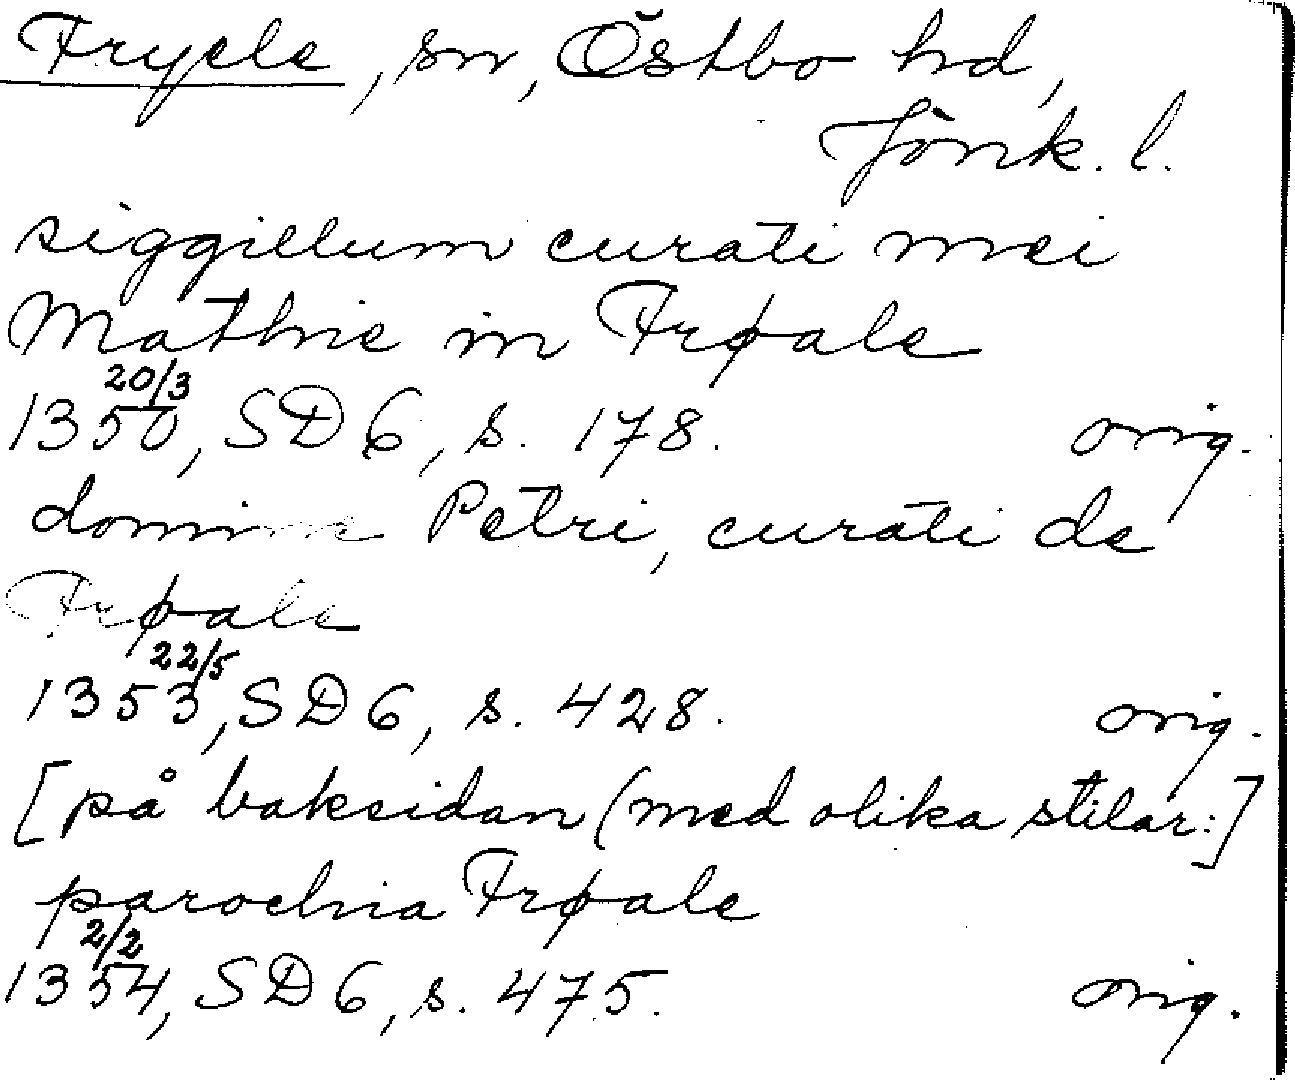 Fryele, sn, Östbo hd,
Jönk. l.
siggillum curati mei
Mathie in Frøale
20/3
1350, SD 6, s. 178. orig.
domine Petri, curati de
Frøale
22/5
1353, SD 6, s. 428. orig.
[på baksidan (med olika stilar:]
parochia Frøale
2/2
1354, SD 6, s. 475. orig.